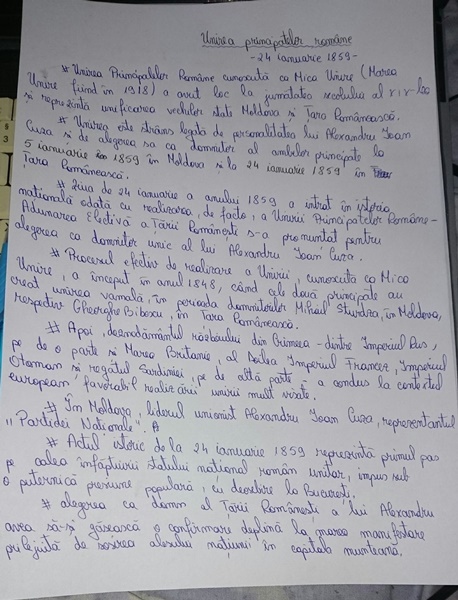 Unirea principatelor române
-24 ianuarie 1859-
# Unirea Principatelor Române cunoscută ca Mica Unire (Marea
Unire fiind în 1918) a avut loc la jumătatea secolului al XIX-lea
și reprezintă unificarea vechilor state Moldova și Țara Românească.
# Unirea este strâns legată de personalitatea lui Alexandru Ioan
Cuza și de alegerea sa ca domnitor al ambelor principate la
5 ianuarie 1859 în Moldova și la 24 ianuarie 1859 în
Țara Românească.
# Ziua de 24 ianuarie a anului 1859 a intrat în istoria
națională odată cu realizarea, de facto, a Unirii Principatelor Române-
Adunarea Electivă a Țării Românești s-a pronunțat pentru
alegerea ca domnitor unic al lui Alexandru Ioan Cuza.
# Procesul efectiv de realizare a Unirii, cunoscută ca Mica
Unire, a început în anul 1848, când cele două principate au
creat unirea vamală, în perioada domnitorilor Mihail Sturdza, în Moldova,
respectiv Gheorghe Bibescu, în Țara Românească.
# Apoi, deznodământul războiului din Crimeea - dintre Imperiul Rus,
pe de o parte și Marea Britanie, al Doilea Imperiul Francez, Imperiul
Otoman și regatul Sardiniei, pe de altă parte, a condus la contextul
european favorabil realizării unirii mult visate.
# În Moldova, liderul unionist Alexandru Ioan Cuza, reprezentantul
„Partidei Naționale".
# Actul istoric de la 24 ianuarie 1859 reprezintă primul pas
pe calea înfăptuirii statului național român unitar, impus sub
o puternică presiune populară, cu deosebire la București.
# alegerea ca domn al Țării Românești a lui Alexandru
avea să-și găsească o confirmare deplină la marea manifestare
prilejuită de sosirea alesului națiunii în capitala munteană.